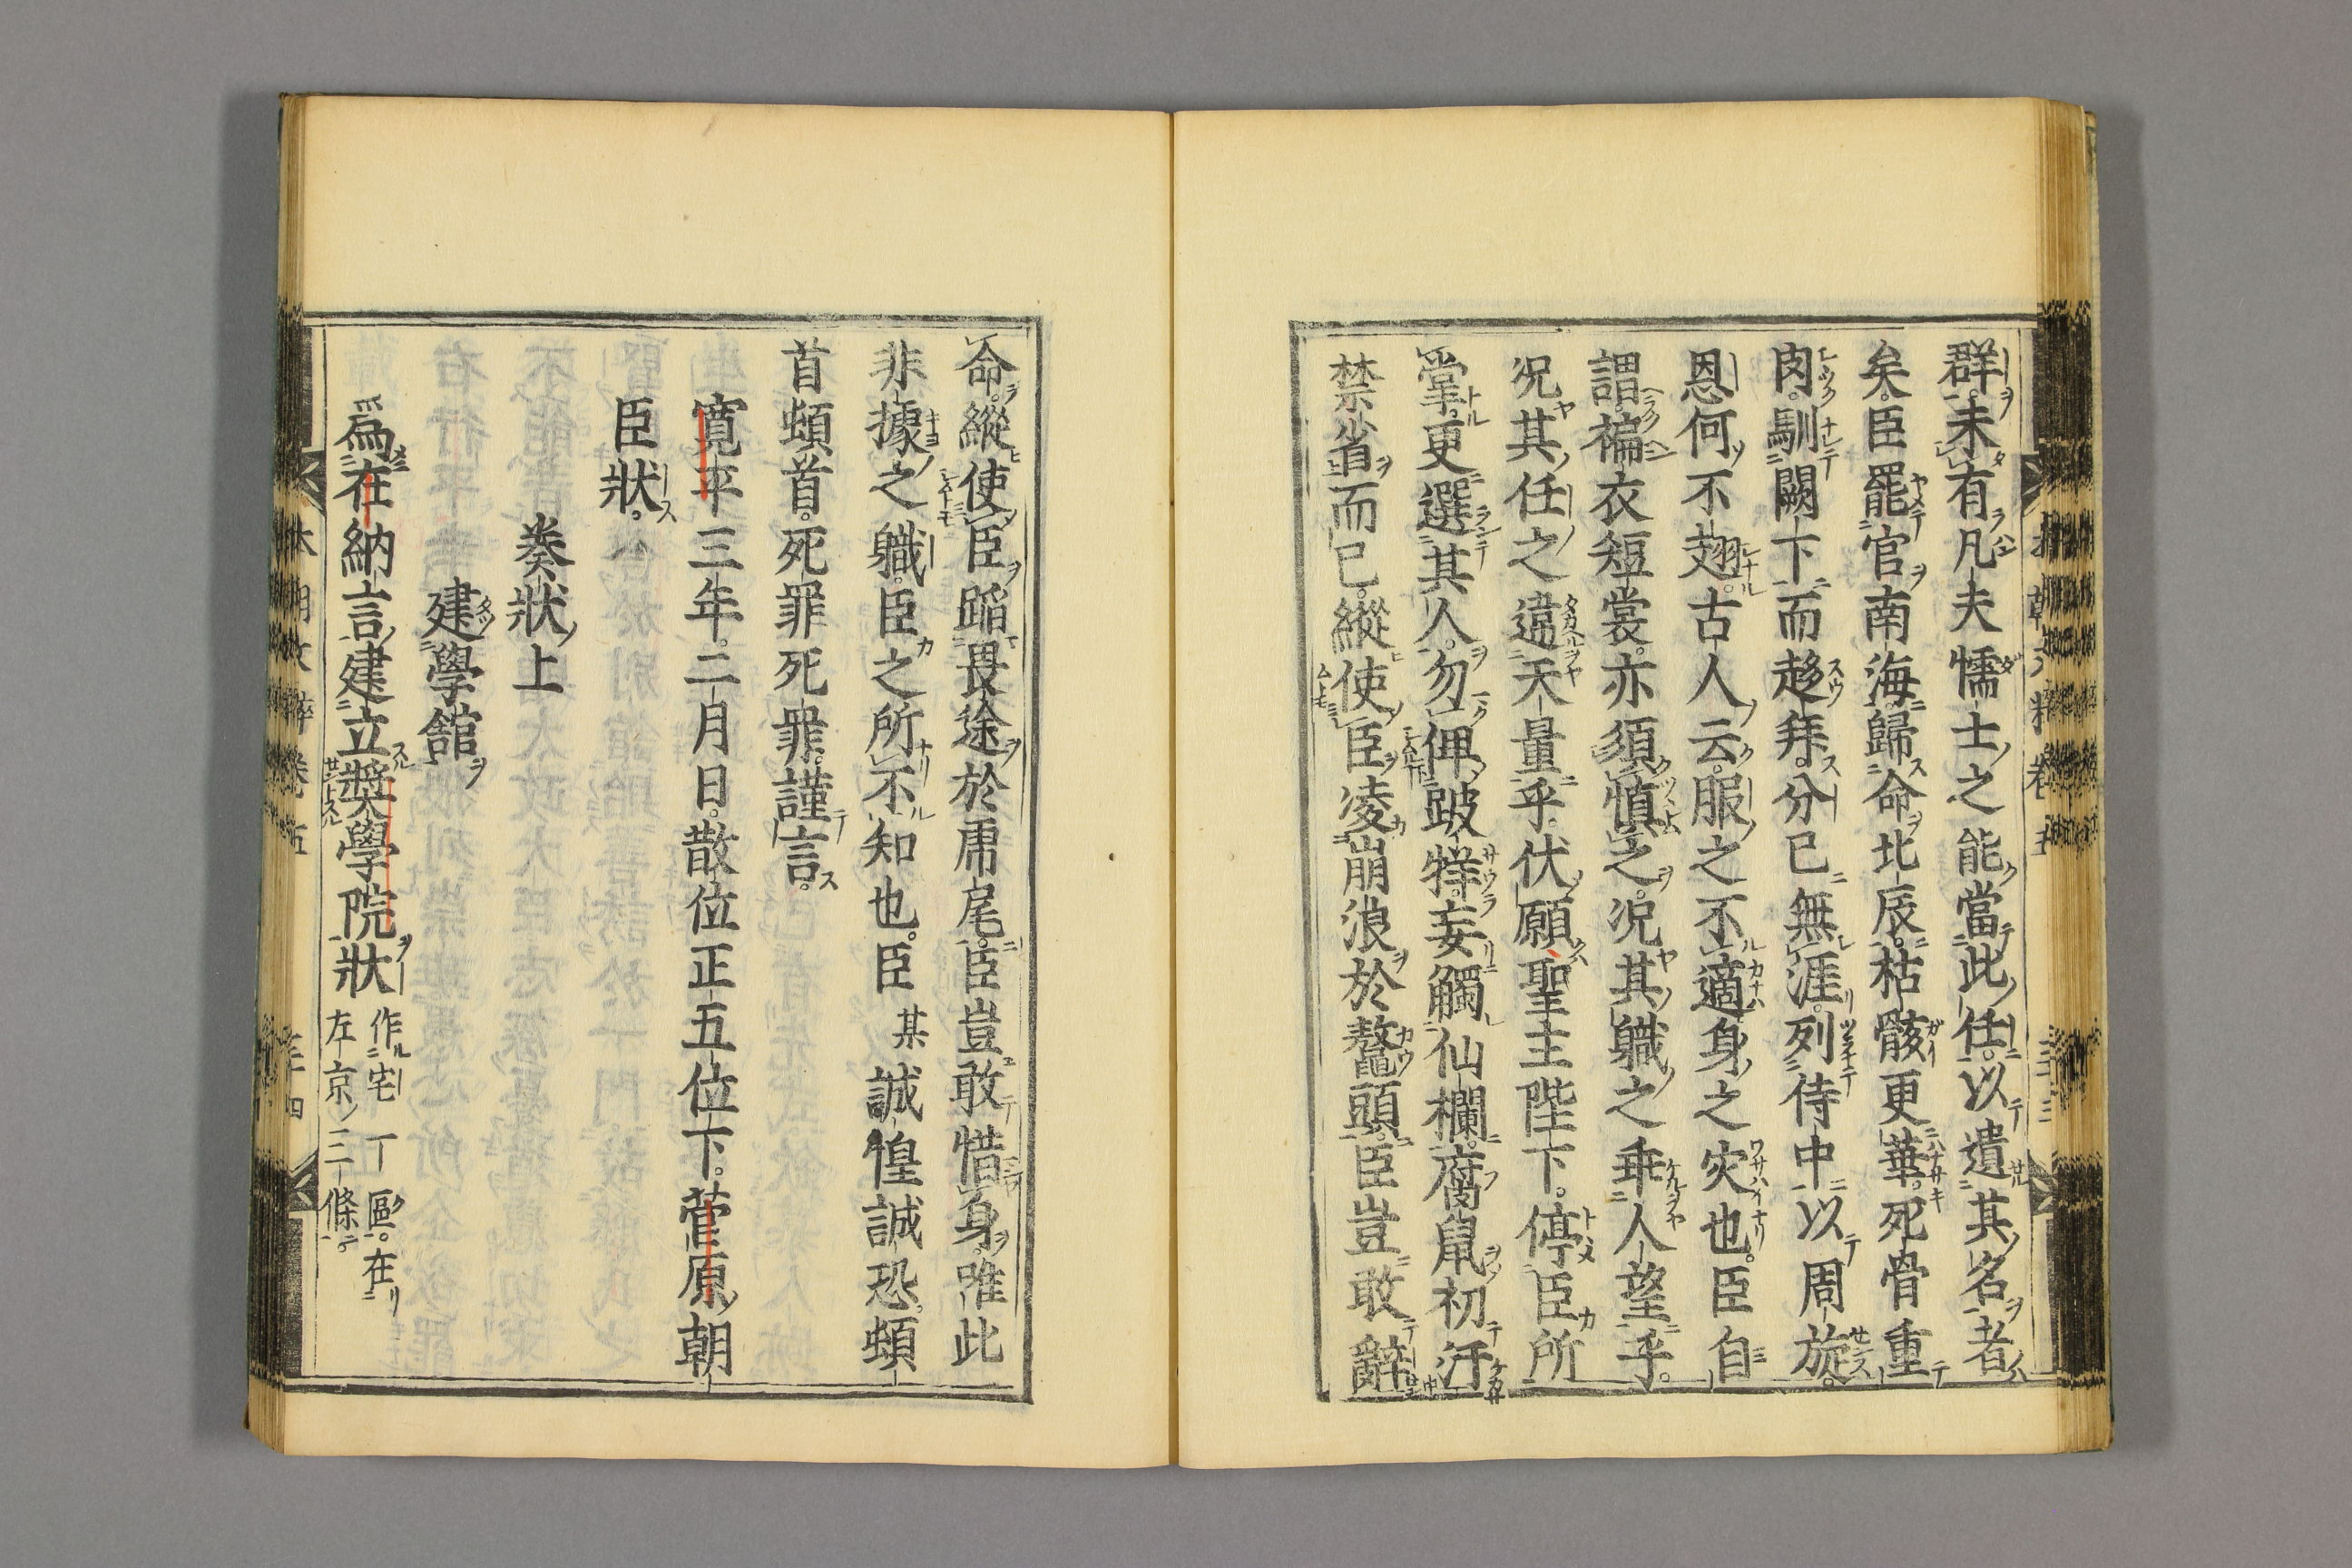 群。未有凡夫懦士之能當此任。以遺其名者
矣。臣罷官南海歸命北辰。枯骸更華。死骨重
肉。馴闕下而趍拜。分已無涯。列侍中以周旋。
恩何不翅。古人云。服之不適身之灾也。臣自
謂。褊衣短裳。亦須慎之。况其職之乖人望乎。
况其任之違天量乎。伏願聖主陛下。停臣所
掌。更選其人。勿俾跛牂妄觸仙欄。腐鼠初汙
禁省而已。縱使臣凌崩浪於鼇頭。臣豈敢辭
命。縱使臣蹈畏途於虎尾。臣豈敢惜身。唯此
非據之職。臣之所不知也。臣某誠惶誠恐。頓
首頓首。死罪死罪。謹言。
寛平三年。二月日。散位正五位下。菅原朝
臣狀。
奏狀上
建學館
爲在納言建立奬學院狀
作宅一區。在
左京三條。
本朝文粹卷五
三十四